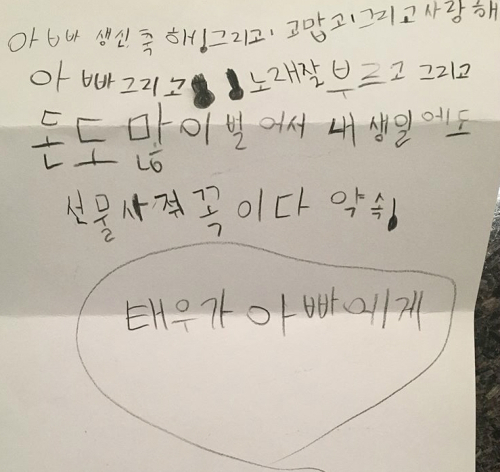 아빠 생신축 해! 그리고! 고맙고! 그리고 사랑해
아빠 그리고 노래잘 부르고 그리고
돈도 많이 벌어서 내 생일에도
선물사줘 꼭이다 약속!
태우가 아빠에게